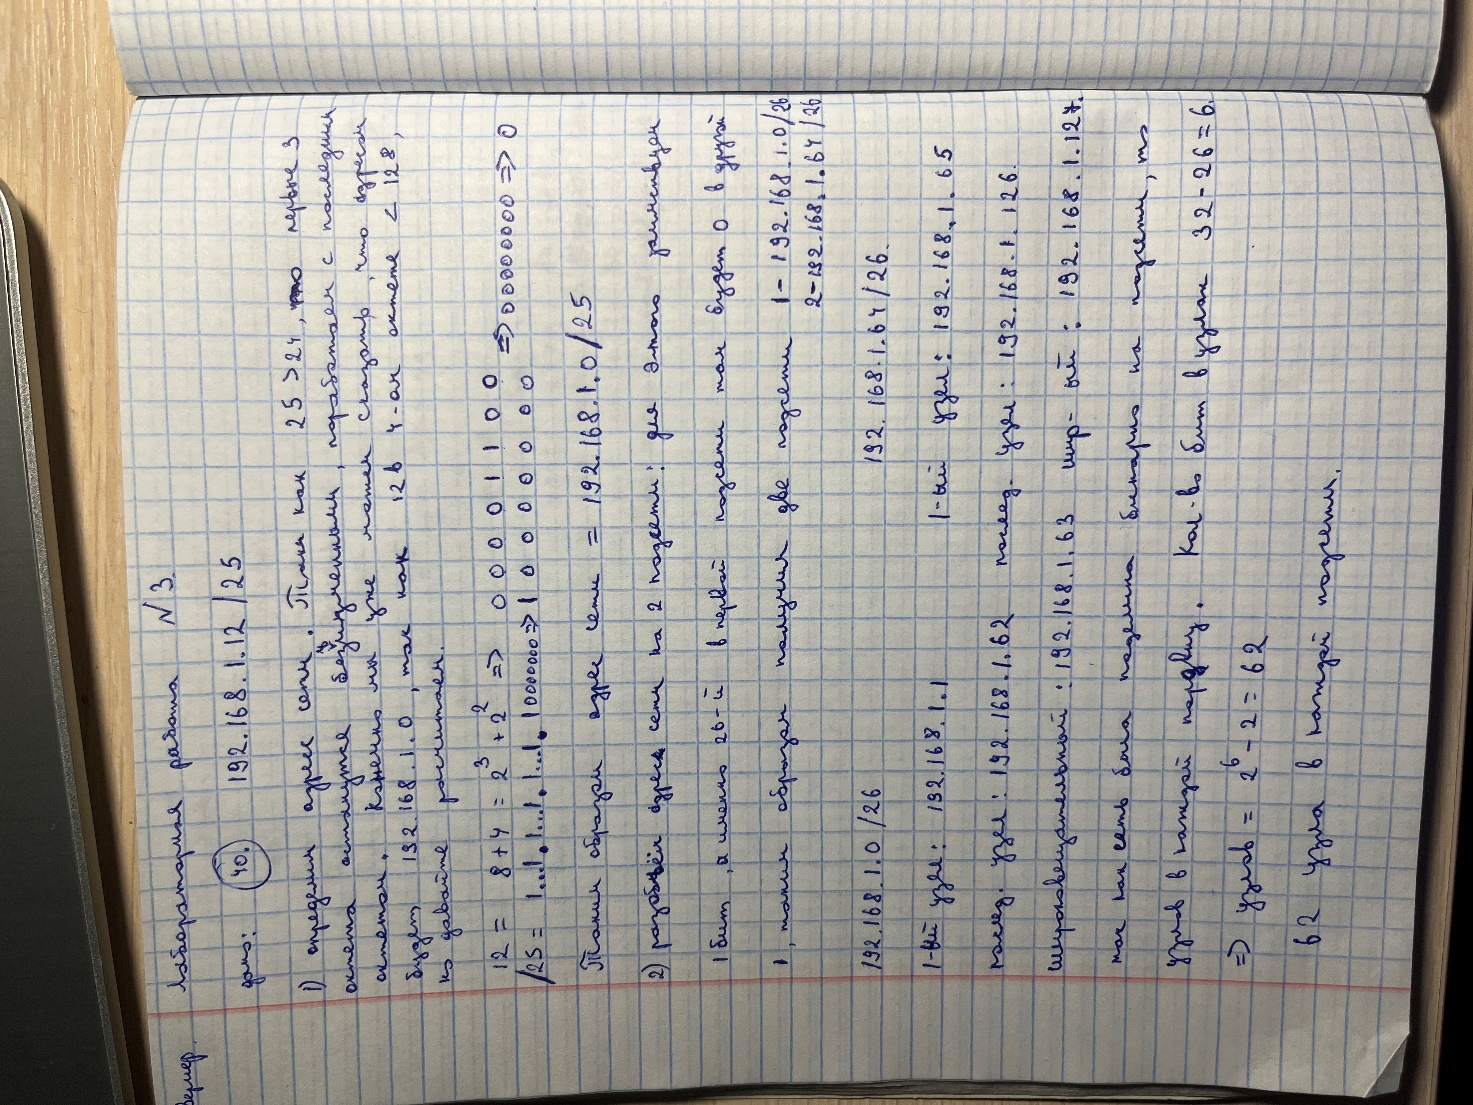 Лабораторная работа №3.
дано: 40. 192.168.1.12/25
1) определим адрес сети. Так как 25 > 24, то первые 3
октета останутся безизменными, поработаем с последним
октетом. Конечно мы уже можем сказать, что адресом
будет 192.168.1.0, так как 12 в 4-ом октете < 128,
но давайте расчитаем.
12 = 8+4 = 2³ + 2² => 0 0 0 0 1 1 0 0 => 00000000 => 0
/25 = 1...1.1...1.1...1.10000000 => 1 0 0 0 0 0 0 0
Таким образом адрес сети = 192.168.1.0/25
2) разобьём адрес сети на 2 подсети: для этого заимствуем
1 бит, а именно 26-й в первой подсети там будет 0 в другой
1, таким образом получим две подсети 1 - 192.168.1.0/26
2 - 192.168.1.64/26
192.168.1.0/26 192.168.1.64/26.
1-ый узел: 192.168.1.1 1-ый узел: 192.168.1.65
послед. узел: 192.168.1.62 послед. узел: 192.168.1.126.
широковещательный: 192.168.1.63 шир-ый: 192.168.1.127.
так как сеть была поделина бинарно на подсети, то
узлов в каждой поровну. Кол-во бит в узлах 32-26=6.
=> узлов = 2⁶ - 2 = 62
62 узла в каждой подсети.